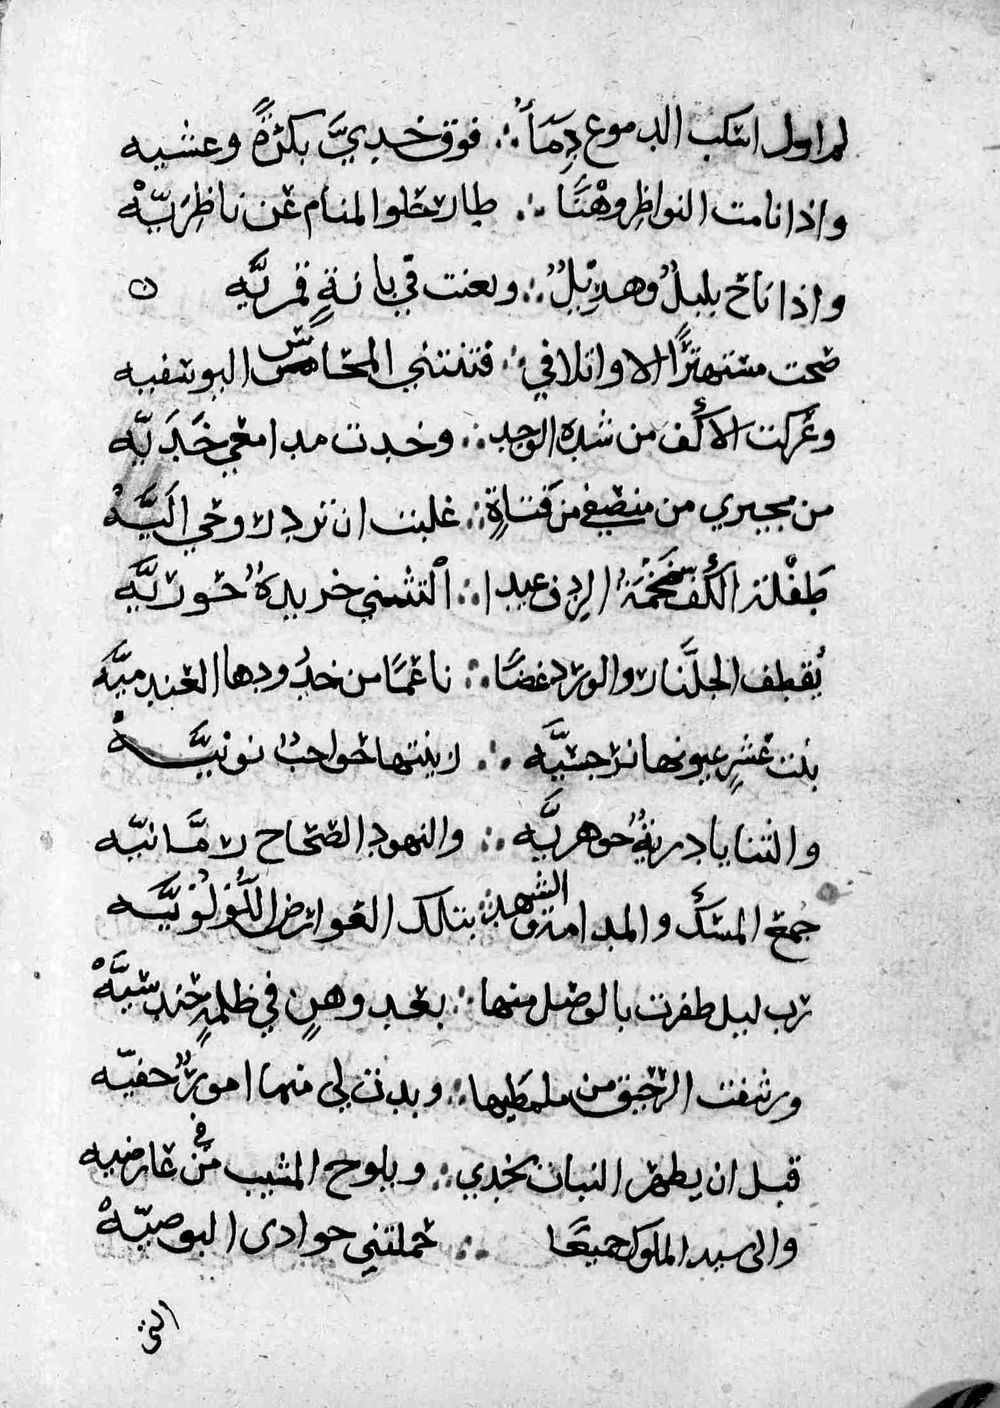 لم ازل اسكب الدموع دِمَاً ∴ فوق خديَّ بكرةً وعشيه
واذا نامت النواظر وهْنًا ∴ طار حلو المنام عن ناظِرَيّهْ
واذا ناح بلبلٌ وهديلٌ ∴ وتغنت في بانةٍ قمريَّه
صحت مستهترًا الا واتلافي ∴ فتنتني المحاسن اليوسفيه
وعركت الاكف من شده الوجد ∴ وخدت مدامعي خَدَيّه
من مجيري من منصفي من فتاةٍ ∴ غلبت ان ترد روحي اليَّهْ
طَفْلة الكف فخمةُ الردف غيدا ∴ التثني خريدةٌ حوريَّه
يُقطف الجلَّنار والورد غضًا ∴ ناعمًا من خدُودها العندميَّه
بنت عشرٍ عيونها نرجسيَّه ∴ زينتها حواجبٌ نونيَّةْ
والثنايا دريةٌ جوهريَّه ∴ والنهود الصحاح رمَّانيّه
جُمع المسك والمدامة والشهد ∴ بتلك العوارض اللؤلؤيَّه
رب ليل ظفرت بالوصل منها ∴ بعد وهنٍ في ظلمةٍ حندسيَّهْ
ورشفت الرحيق من ∴ وبدت لي منها امورٌ خفيّه
قبل ان يظهر النبات بخدي ∴ ويلوح المشيب في من عارضيه
والى سيد الملوك جميعًا ∴ حملتني جوادى البوصيّهْ